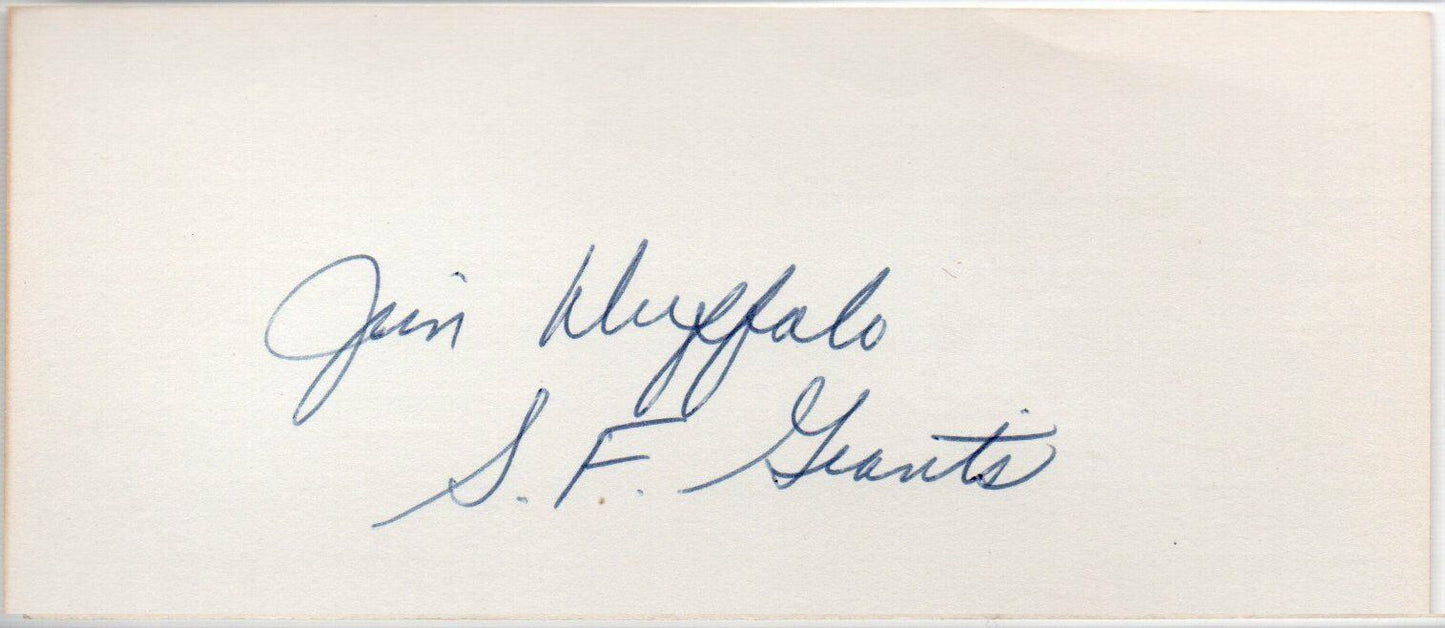 Jim Duffalo
S. F. Giants